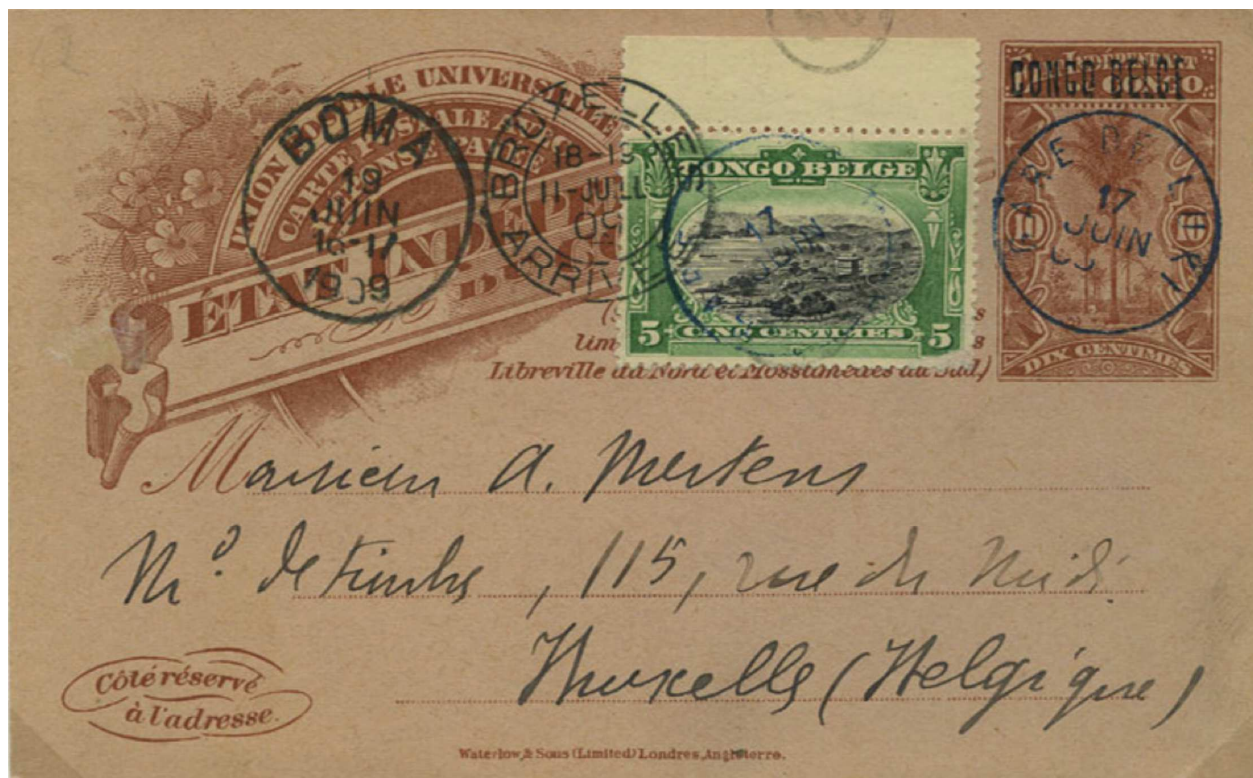 UNION POSTALE UNIVERSELLE
CARTE POSTALE AVEC
RÉPONSE PAYÉE
ÉTAT INDÉPE
DU
BOMA
19
JUIN
16-17
1909
BRUXELLES
18-19
11-JUIL
09
ARRIVÉE
CONGO BELGE
17
JUIN
5 CINQ CENTIMES 5
CONGO BELGE
MARE DE LUKI
17
JUIN
10 10
DIX CENTIMES
Libreville au Nord et Mossamédès au Sud.)
Monsieur A. Mertens
Md de timbres, 115, rue du Midi
Bruxelles (Belgique)
Côté réservé
à l'adresse.
Waterlow & Sons (Limited) Londres, Angleterre.